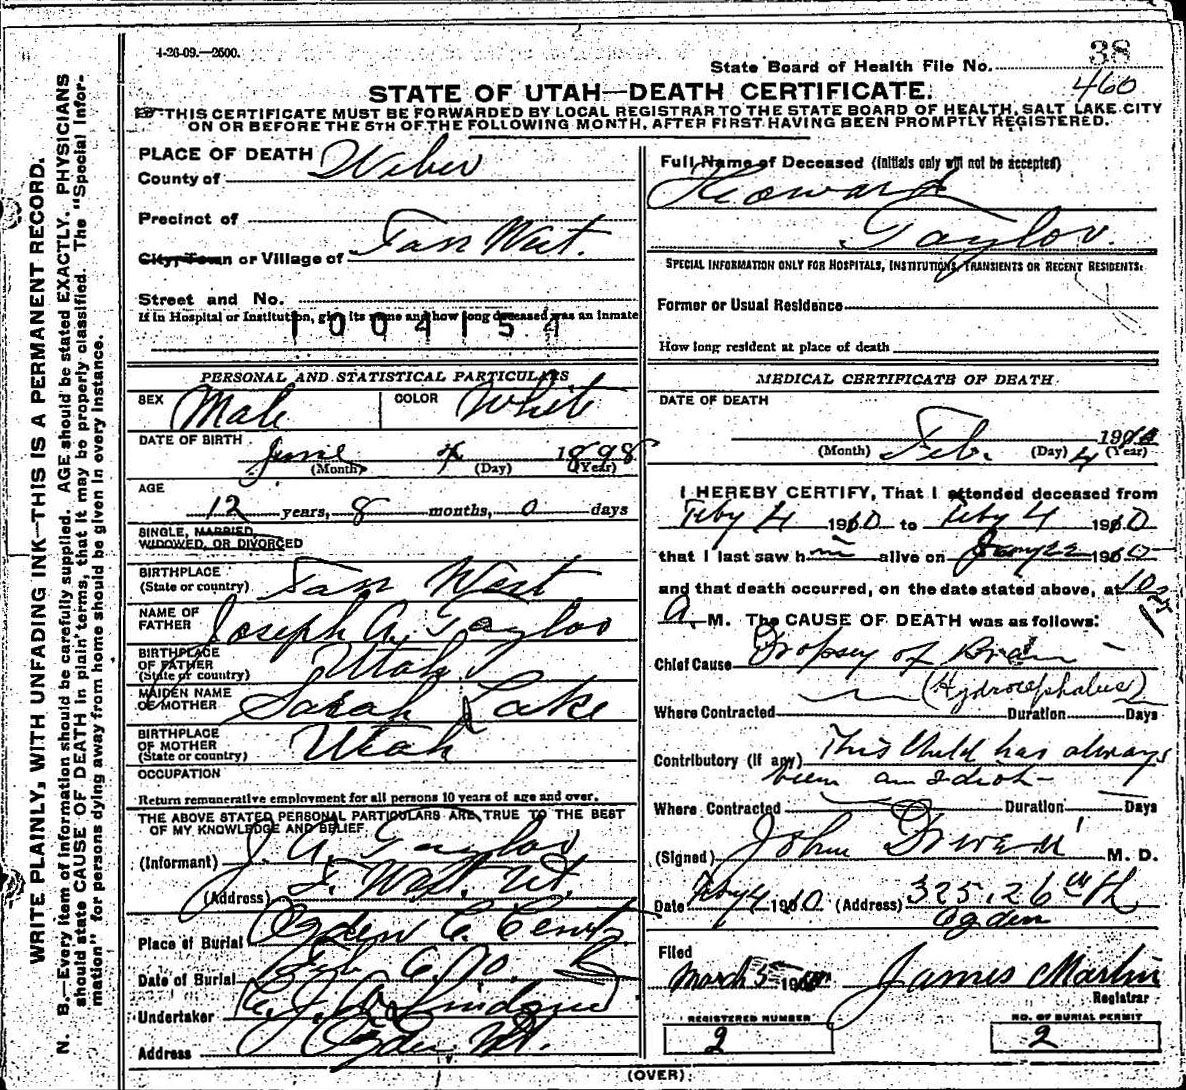 4-26-09.—2500.
38
State Board of Health File No.
460
STATE OF UTAH—DEATH CERTIFICATE.
THIS CERTIFICATE MUST BE FORWARDED BY LOCAL REGISTRAR TO THE STATE BOARD OF HEALTH, SALT LAKE CITY
ON OR BEFORE THE 5TH OF THE FOLLOWING MONTH, AFTER FIRST HAVING BEEN PROMPTLY REGISTERED.
WRITE PLAINLY, WITH UNFADING INK—THIS IS A PERMANENT RECORD.
N. B.—Every item of information should be carefully supplied. AGE should be stated EXACTLY. PHYSICIANS
should state CAUSE OF DEATH in plain terms, that it may be properly classified. The "Special Infor-
mation" for persons dying away from home should be given in every instance.
PLACE OF DEATH
County of Weber
Precinct of
City, Town or Village of Far West.
Street and No.
If in Hospital or Institution, give its name and how long deceased was an inmate
1004154
PERSONAL AND STATISTICAL PARTICULARS
SEX Male COLOR White
DATE OF BIRTH
June 4 1898
(Month) (Day) (Year)
AGE
12 years, 8 months, 0 days
SINGLE, MARRIED,
WIDOWED, OR DIVORCED
BIRTHPLACE
(State or country) Far West
NAME OF
FATHER Joseph A. Taylor
BIRTHPLACE
OF FATHER
(State or country) Utah
MAIDEN NAME
OF MOTHER Sarah Lake
BIRTHPLACE
OF MOTHER
(State or country) Utah
OCCUPATION
Return remunerative employment for all persons 10 years of age and over.
THE ABOVE STATED PERSONAL PARTICULARS ARE TRUE TO THE BEST
OF MY KNOWLEDGE AND BELIEF
(Informant) J. A. Taylor
(Address) F. West. Ut.
Place of Burial Ogden C. Cemty
Date of Burial Feb 6. 10.
Undertaker
Address Ogden Ut.
Full Name of Deceased (Initials only will not be accepted)
Howard
Taylor.
SPECIAL INFORMATION ONLY FOR HOSPITALS, INSTITUTIONS, TRANSIENTS OR RECENT RESIDENTS.
Former or Usual Residence
How long resident at place of death
MEDICAL CERTIFICATE OF DEATH
DATE OF DEATH
1910
(Month) Feb. (Day) 4 (Year)
I HEREBY CERTIFY, That I attended deceased from
Feby 4 1910 to Feby 4 1910
that I last saw him alive on Jany 22 1910
and that death occurred, on the date stated above, at 10
A. M. The CAUSE OF DEATH was as follows:
Chief Cause Dropsy of Brain
(Hydrocephalus)
Where Contracted Duration Days
Contributory (if any) This Child has always
been an Idiot
Where Contracted Duration Days
(Signed) John M. D.
Date Feby 4 1910 (Address) 325. 26th St
Ogden
Filed
March 5 19 James Martin
Registrar
REGISTERED NUMBER
2
NO. OF BURIAL PERMIT
2
(OVER)